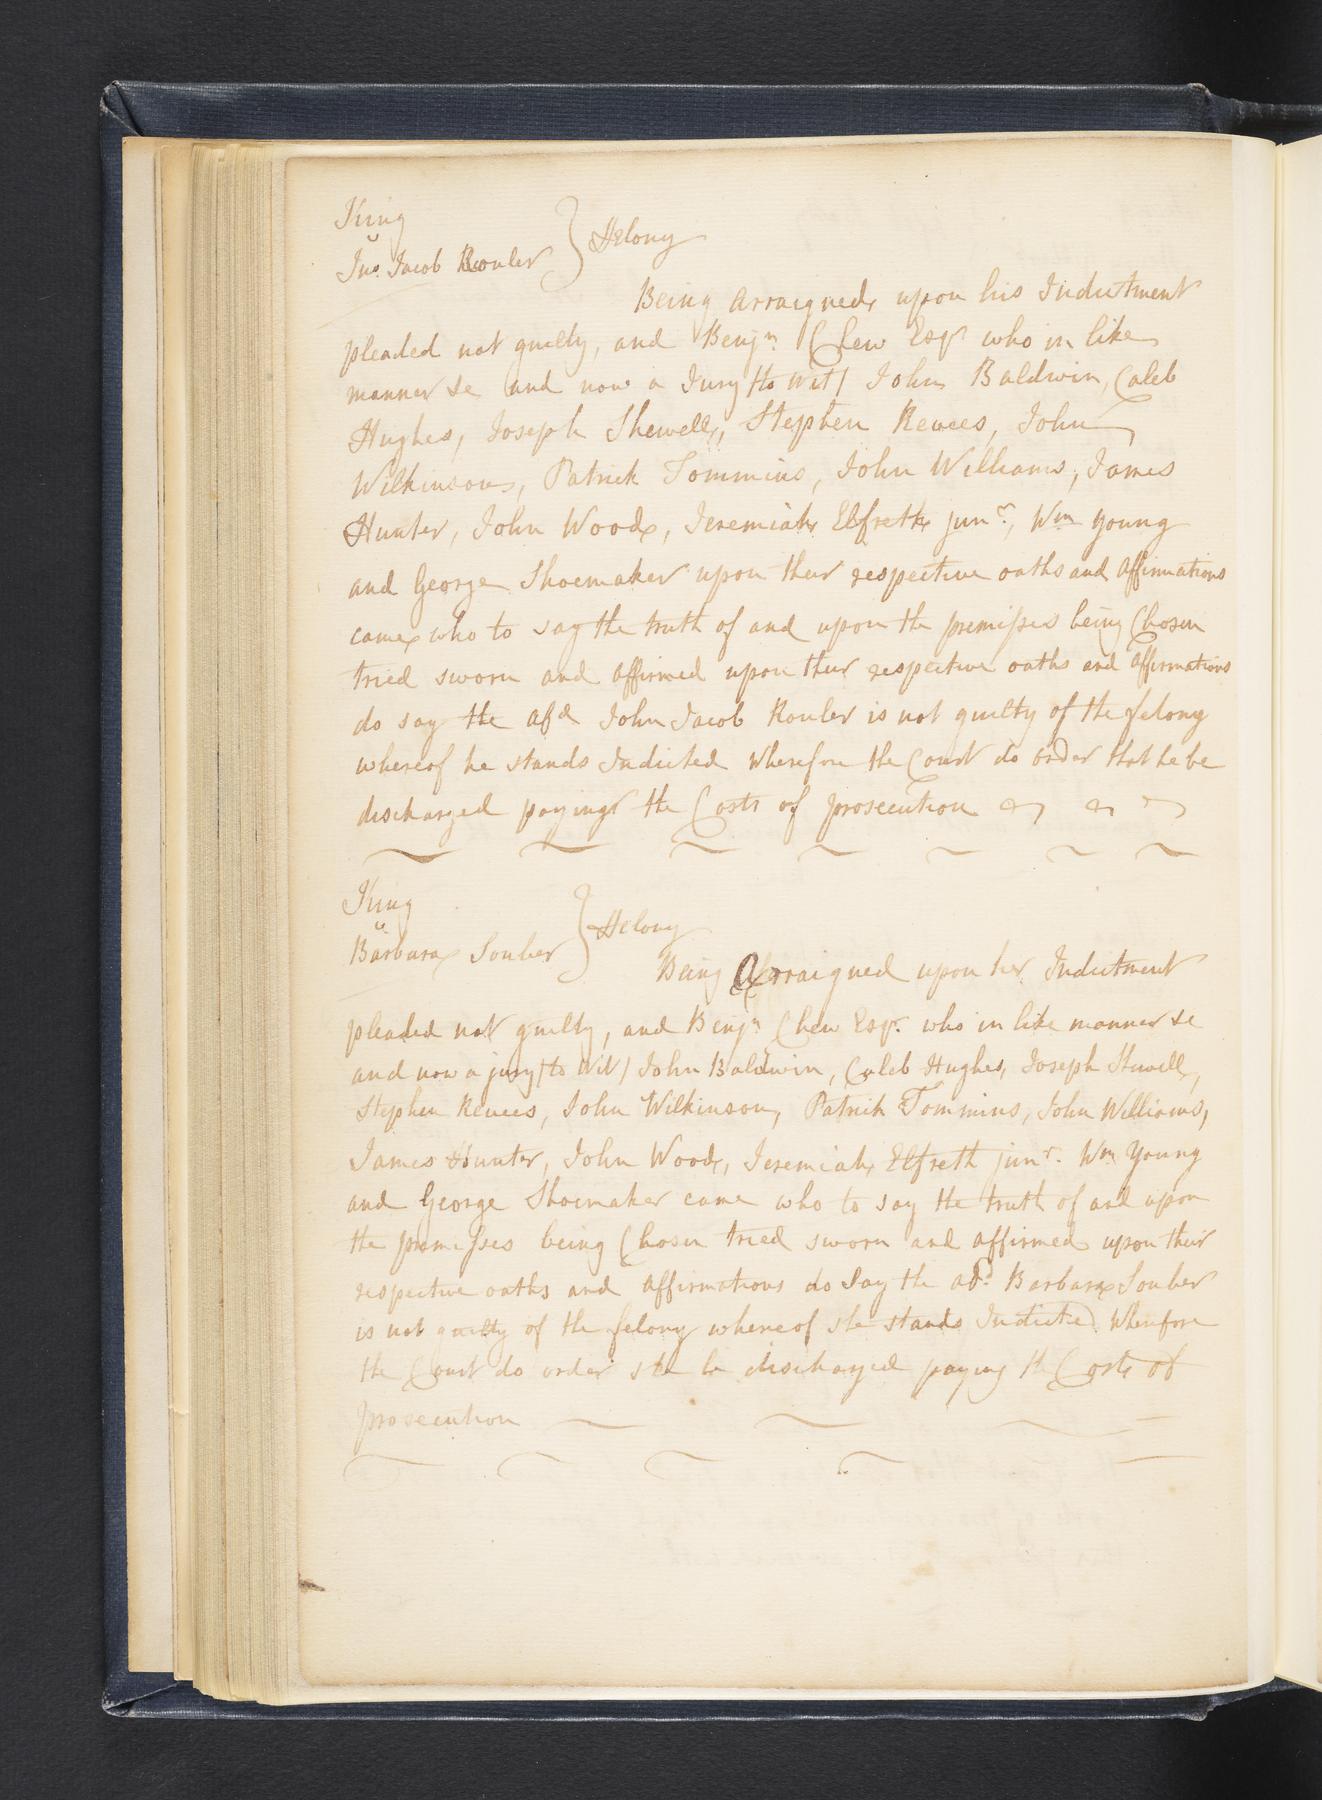 King
v
Jno. Jacob Rouler } Felony
Being Arraigned upon his Indictment
pleaded not guilty, and Benjn. Chew Esqr. who in like
manner &c and now a Jury /to wit/ John Baldwin, Caleb
Hughes, Joseph Shewell, Stephen Reves, John
Wilkinson, Patrick Tommins, John Williams, James
Hunter, John Wood, Jeremiah Elfreth junr., Wm Young
and George Shoemaker upon their respective oaths and affirmations
came who to say the truth of and upon the premisses being Chosen
tried sworn and affirmed upon their respective oaths and affirmations
do say the afd John Jacob Rouler is not guilty of the felony
whereof he stands Indicted Wherefore the Court do order that he be
discharged paying the Costs of prosecution
King
v
Barbara Souber } Felony
Being Arraigned upon her Indictment
pleaded not guilty, and Benjn Chew Esqr. who in like manner &c
and now a jury /to Wit/ John Baldwin, Caleb Hughes, Joseph Shwell,
Stephen Reves, John Wilkinson, Patrick Tommins, John Williams,
James Hunter, John Wood, Jeremiah Elfreth junr. Wm Young
and George Shoemaker came who to say the truth of and upon
the premisses being Chosen tried sworn and affirmed upon their
respective oaths and affirmations do Say the afd. Barbara Souber
is not guilty of the felony whereof she stands Indicted Wherefore
the Court do order she be discharged paying the Costs of
prosecution